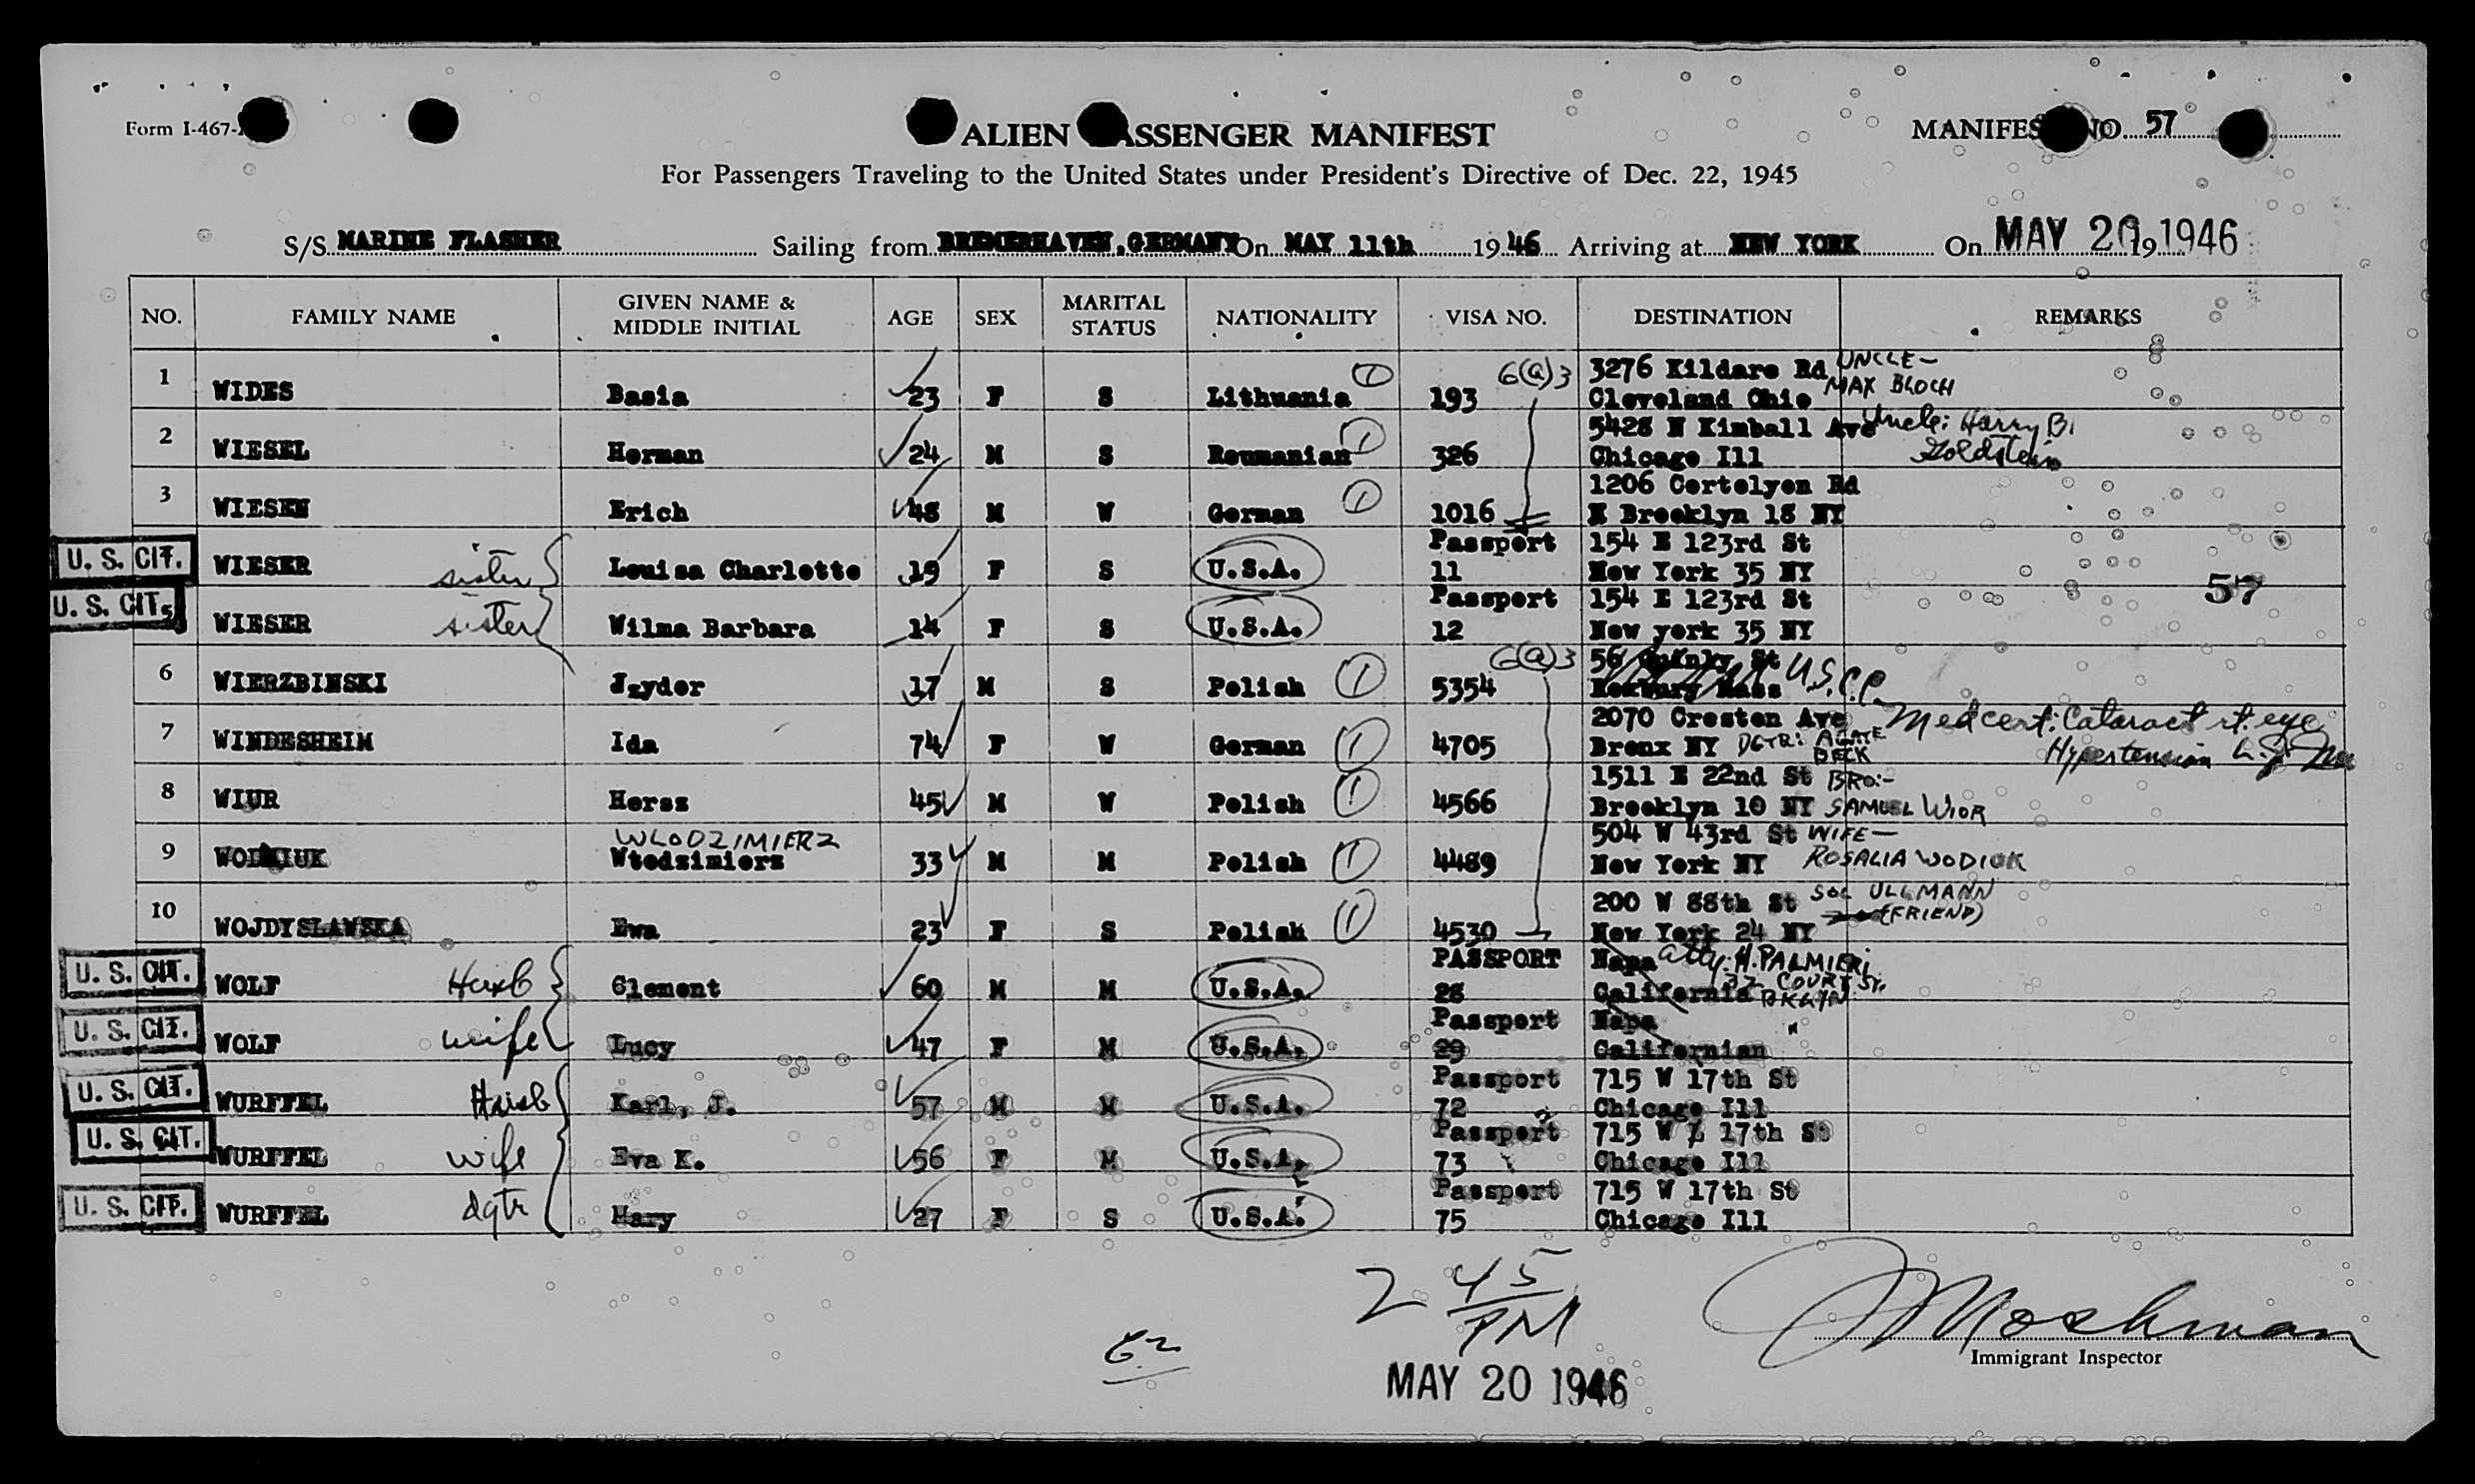 Form I-467-
ALIEN PASSENGER MANIFEST
MANIFEST NO. 57
For Passengers Traveling to the United States under President's Directive of Dec. 22, 1945
S/S MARINE FLASHER Sailing from BREMERHAVEN, GERMANY On MAY 11th 1946 Arriving at NEW YORK On MAY 20 19 1946
NO. FAMILY NAME GIVEN NAME & MIDDLE INITIAL AGE SEX MARITAL STATUS NATIONALITY VISA NO. DESTINATION REMARKS
1 WIDES Basia 23 F S Lithuania 1 193 6(a)3 3276 Kildare Rd UNCLE-
Cleveland Ohio MAX BLOCH
2 WIESEL Herman 24 M S Roumanian 1 326 5428 N Kimball Ave Uncle: Harry B.
Chicago Ill Goldstein
3 WIESEN Erich 48 M W German 1 1016 1206 Cortelyon Rd
X Brooklyn 18 NY
U. S. CIT. WIESER sister Louisa Charlotte 19 F S U.S.A. Passport 154 E 123rd St
11 New York 35 NY
57
U. S. CIT. 5 WIESER sister Wilma Barbara 14 F S U.S.A. Passport 154 E 123rd St
12 New york 35 NY
6 WIERZBINSKI Jzyder 17 M S Polish 1 5354 6(a)3 56 St U.S.C.C.
Roxbury Mass
7 WINDESHEIM Ida 74 F W German 1 4705 2070 Creston Ave Med cert: Cataract rt. eye
Bronx NY DGTR: AGATE BECK Hypertension
8 WIUR Hersz 45 M W Polish 1 4566 1511 E 22nd St BRO:-
Brooklyn 10 NY SAMUEL WIOR
WLODZIMIERZ
9 Wtodzimierz 33 M M Polish 1 4489 504 W 43rd St WIFE-
New York NY ROSALIA WODIUK
10 WOJDYSLAWSKA Ewa 23 F S Polish 1 4530 200 W 88th St SOL ULLMANN
New York 24 NY (FRIEND)
U. S. CIT. WOLF Husb Clement 60 M M U.S.A. PASSPORT Napa atty. H. PALMIERI
28 California 32 COURT ST. BKLYN
U. S. CIT. WOLF wife Lucy 47 F M U.S.A. Passport Napa "
29 Californian
U. S. CIT. WURFFEL Husb Karl, J. 57 M M U.S.A. Passport 715 W 17th St
72 Chicago Ill
U. S. CIT. WURFFEL wife Eva K. 56 F M U.S.A. Passport 715 W 17th St
73 Chicago Ill
U. S. CIT. WURFFEL dgtr Mary 27 F S U.S.A. Passport 715 W 17th St
75 Chicago Ill
2 45 PM
Moshman
Immigrant Inspector
MAY 20 1946